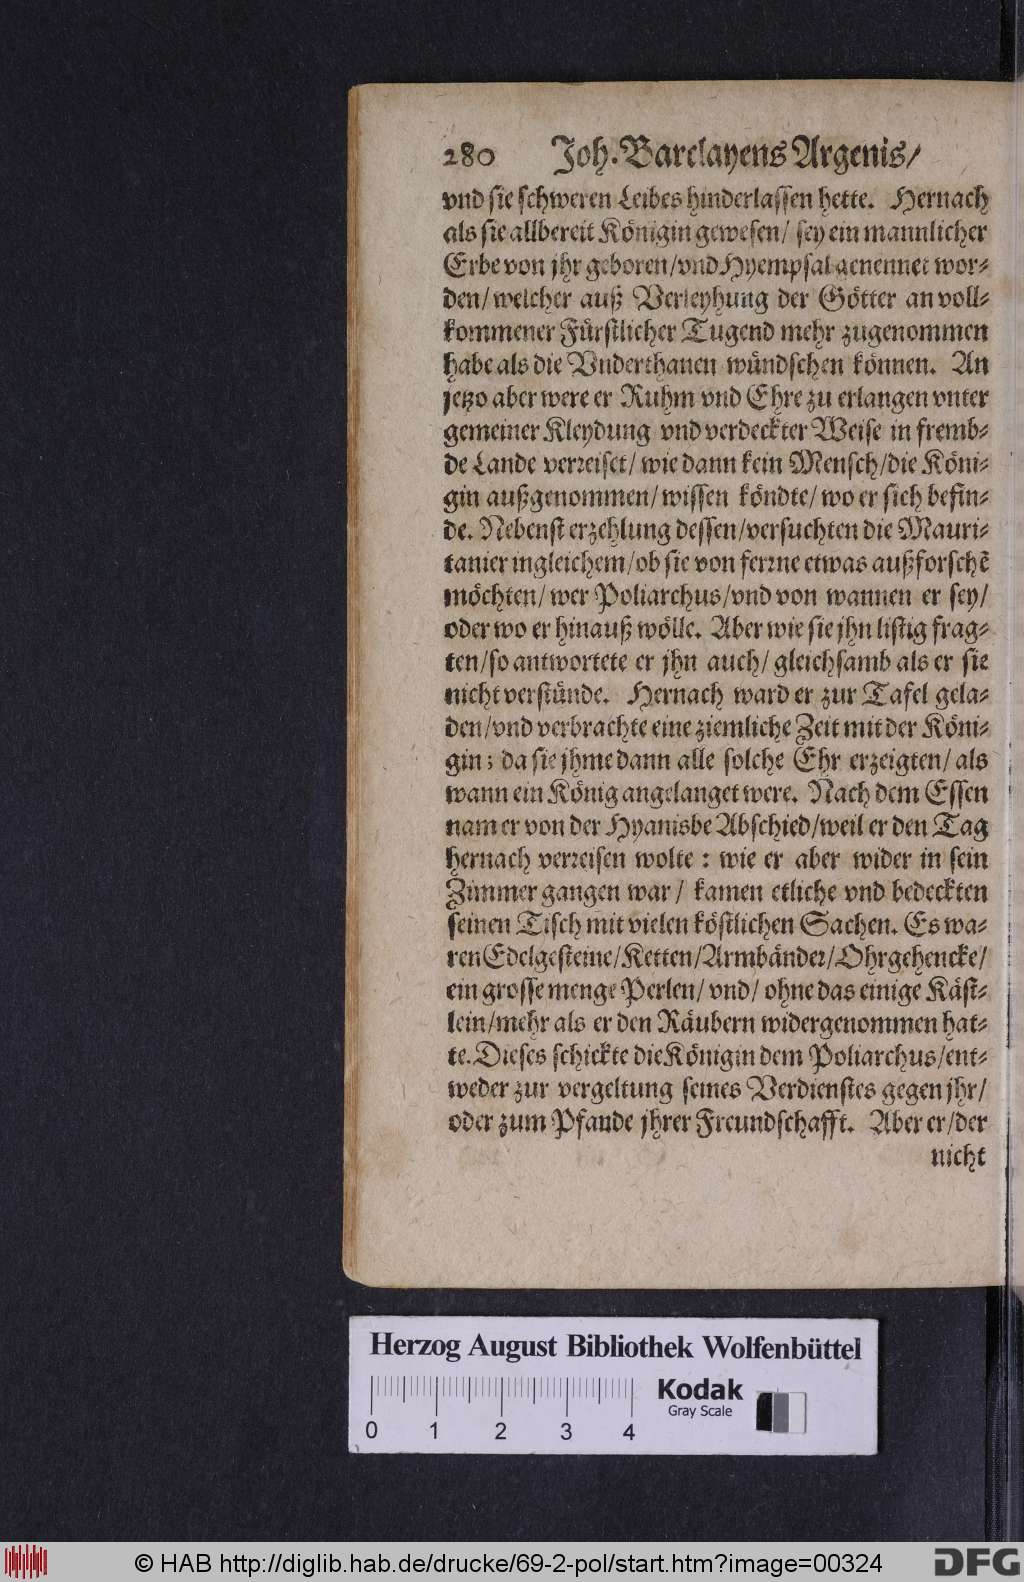 280 Joh. Barclayens Argenis/
vnd sie schweren Leibes hinderlassen hette. Hernach
als sie allbereit Königin gewesen/ sey ein mannlicher
Erbe von jhr geboren/vnd Hyempsal genennet wor-
den/welcher auß Verleyhung der Götter an voll-
kommener Fürstlicher Tugend mehr zugenommen
habe als die Vnderthanen wündschen können. An
jetzo aber were er Ruhm vnd Ehre zu erlangen vnter
gemeiner Kleydung vnd verdeckter Weise in fremb-
de Lande verreiset/ wie dann kein Mensch/die Köni-
gin außgenommen/ wissen köndte/ wo er sich befin-
de. Nebenst erzehlung dessen/versuchten die Mauri-
tanier ingleichem/ob sie von ferrne etwas außforschẽ
möchten/ wer Poliarchus/vnd von wannen er sey/
oder wo er hinauß wölle. Aber wie sie jhn listig frag-
ten/so antwortete er jhn auch/ gleichsamb als er sie
nicht verstünde. Hernach ward er zur Tafel gela-
den/vnd verbrachte eine ziemliche Zeit mit der Köni-
gin; da sie jhme dann alle solche Ehr erzeigten/ als
wann ein König angelanget were. Nach dem Essen
nam er von der Hyanisbe Abschied/weil er den Tag
hernach verreisen wolte : wie er aber wider in sein
Zimmer gangen war/ kamen etliche vnd bedeckten
seinen Tisch mit vielen köstlichen Sachen. Es wa-
ren Edelgesteine/Ketten/Armbänder/Ohrgehencke/
ein grosse menge Perlen/ vnd/ ohne das einige Käst-
lein/mehr als er den Räubern widergenommen hat-
te. Dieses schickte die Königin dem Poliarchus/ent-
weder zur vergeltung seines Verdienstes gegen jhr/
oder zum Pfande jhrer Freundschafft. Aber er/der
nicht
Herzog August Bibliothek Wolfenbüttel
Kodak
Gray Scale
0 1 2 3 4
© HAB http://diglib.hab.de/drucke/69-2-pol/start.htm?image=00324
DFG